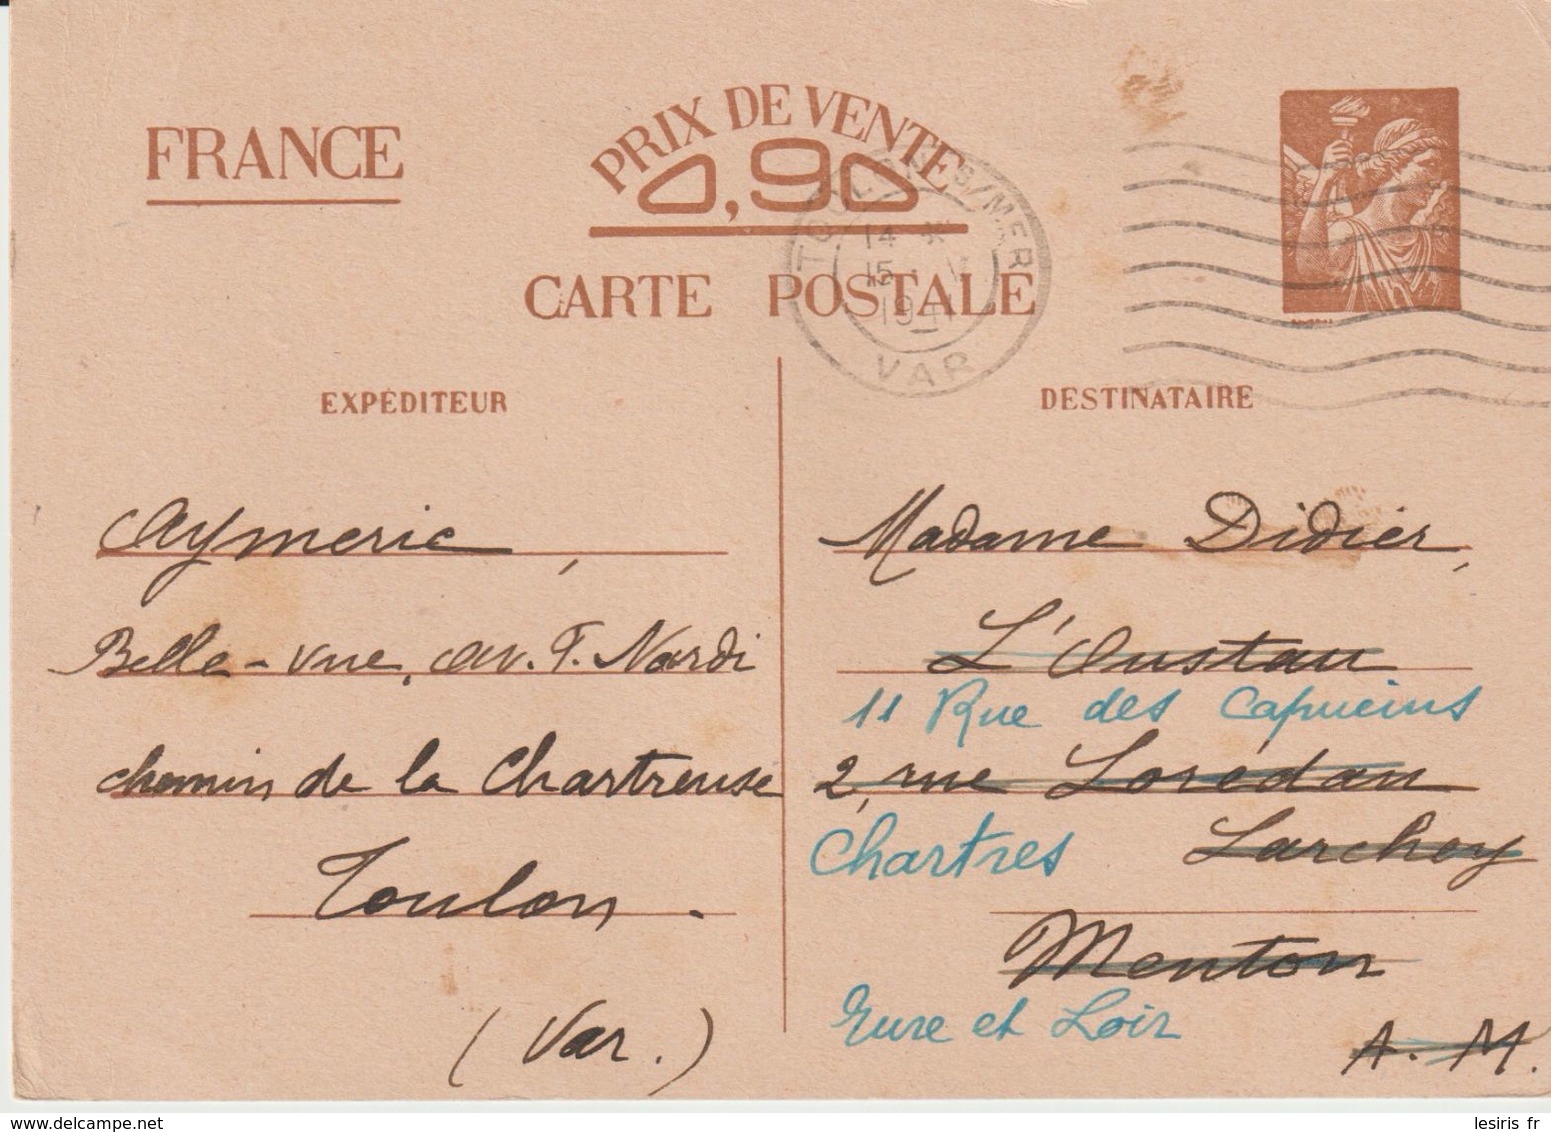 FRANCE
PRIX DE VENTE
0,90
CARTE POSTALE
TOULON S/MER
14 *
15
1941
VAR
EXPÉDITEUR
Aymeric,
Belle-vue, av. F. Nardi
chemin de la Chartreuse
Toulon.
(Var.)
DESTINATAIRE
Madame Didier,
L'Oustau
11 Rue des Capucins
2, rue Lorédan
Larchey
Chartres
Menton
Eure et Loir
A. M.
lesiris fr